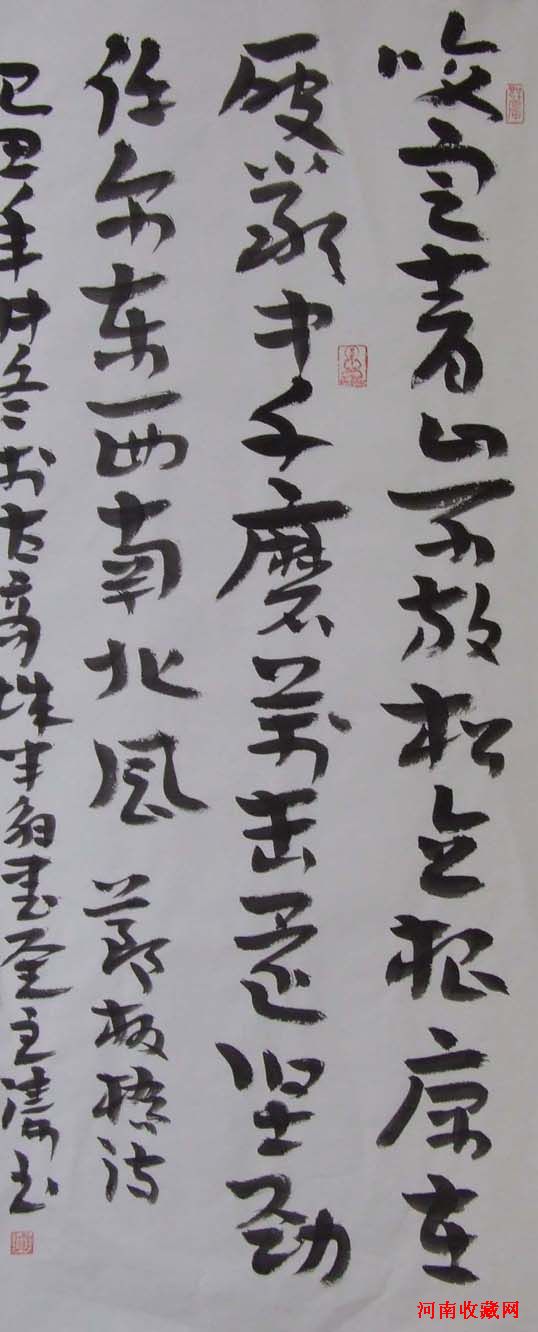 咬定青山不放松立根原在
破巖中千磨萬击还坚劲
任尔东西南北风 郑板桥诗
己丑年仲冬于古商城半书屋主涛书
河南收藏网